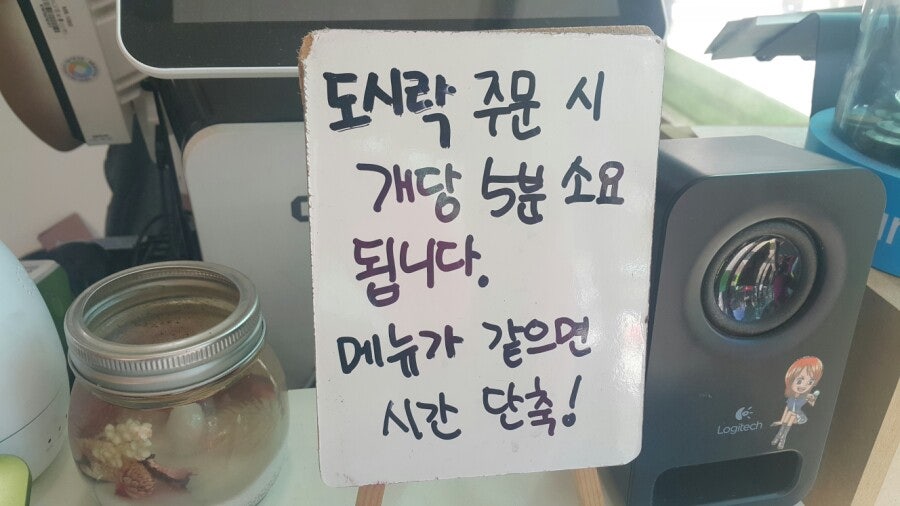 도시락 주문 시
개당 5분 소요
됩니다.
메뉴가 같으면
시간 단축!
Logitech